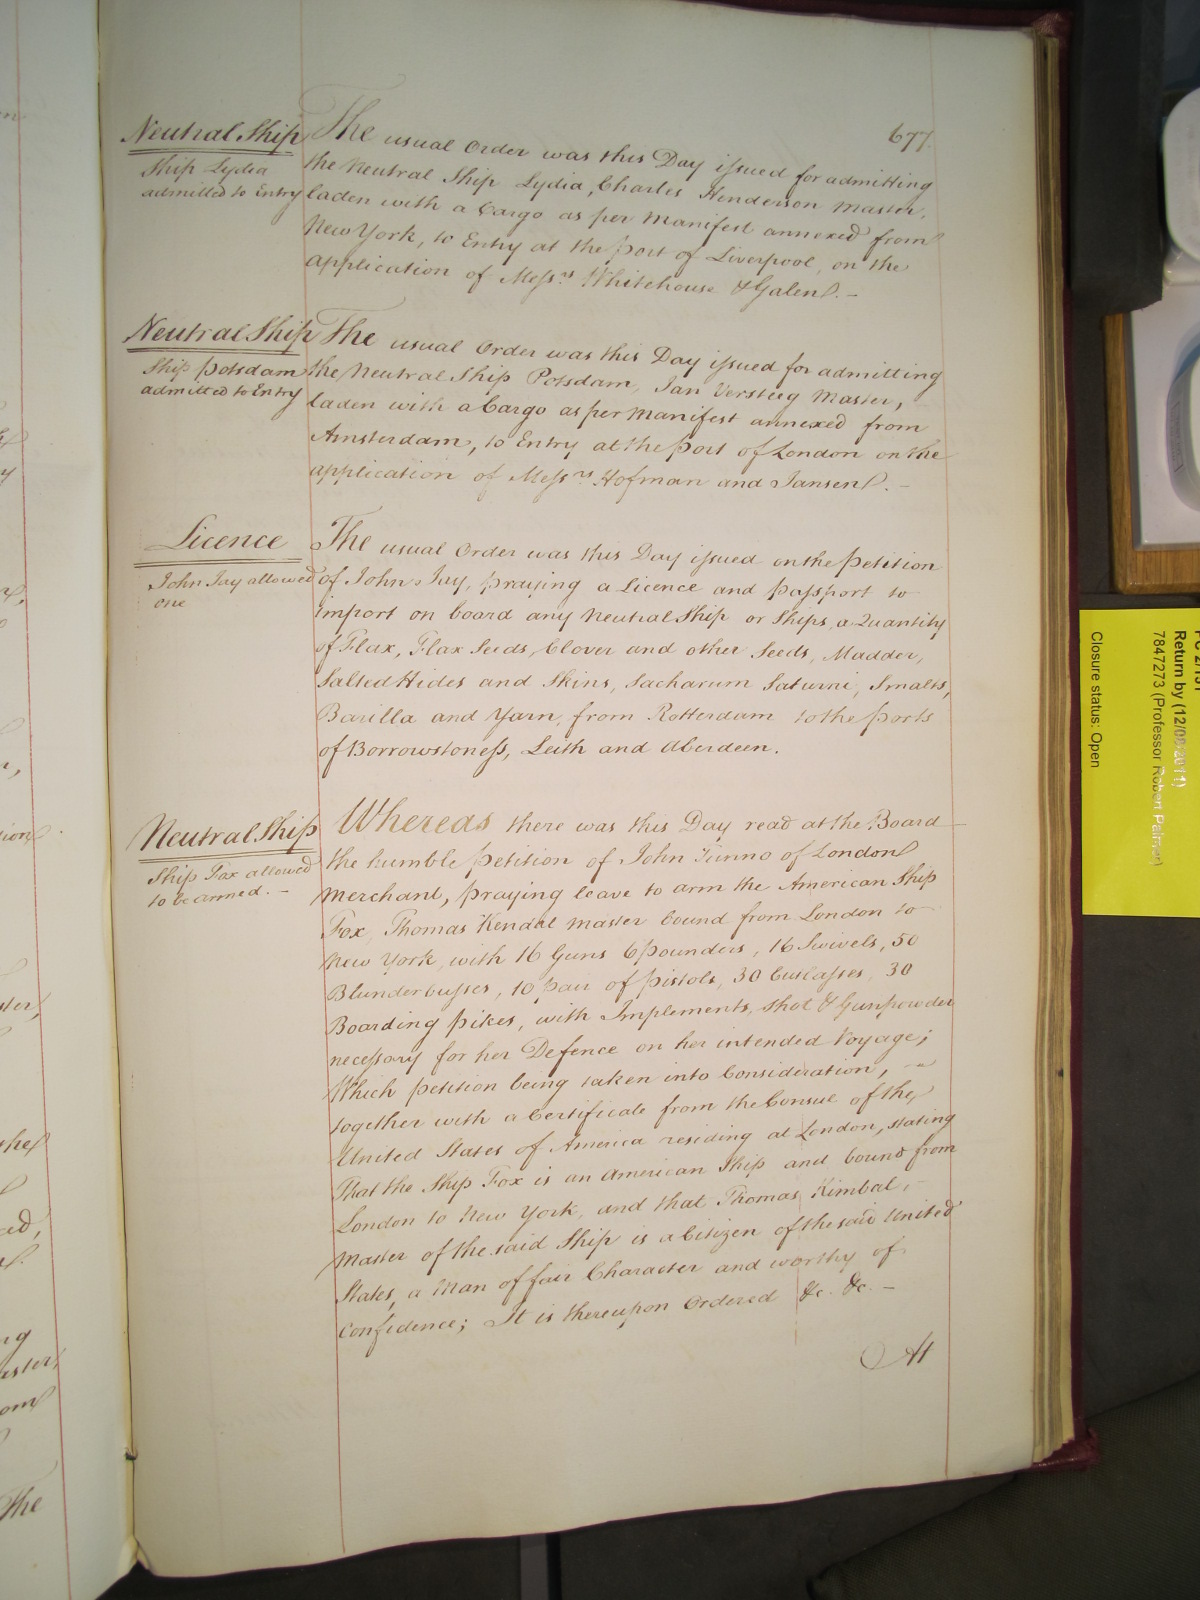 677.
Neutral Ship
Ship Lydia
admitted to Entry
The usual Order was this Day issued for admitting
the Neutral Ship Lydia, Charles Henderson Master,
laden with a Cargo as per Manifest annexed from
New York, to Entry at the port of Liverpool, on the
application of Messrs Whitehouse & Galen. –
Neutral Ship
Ship Potsdam
admitted to Entry
The usual Order was this Day issued for admitting
the Neutral Ship Potsdam, Jan Versteeg Master,
laden with a Cargo as per Manifest annexed from
Amsterdam, to Entry at the port of London on the
application of Messrs Hofman and Jansen. –
Licence
John Jay allowed
one
The usual Order was this Day issued on the petition
of John Jay, praying a Licence and passport to
import on board any Neutral Ship or Ships, a Quantity
of Flax, Flax Seeds, Clover and other Seeds, Madder,
Salted Hides and Skins, Sacharum Saturni, Smalts,
Barilla and Yarn, from Rotterdam to the ports
of Borrowstoness, Leith and Aberdeen.
Neutral Ship
Ship Fox allowed
to be armed. –
Whereas there was this Day read at the Board
the humble petition of John Tunno of London
Merchant, praying leave to arm the American Ship
Fox, Thomas Kendal Master bound from London to
New York, with 16 Guns 6 pounders, 16 Swivels, 50
Blunderbusses, 10 pair of pistols, 30 Cutlasses, 30
Boarding pikes, with Implements, shot & Gunpowder
necessary for her Defence on her intended Voyage;
Which petition being taken into Consideration,
together with a Certificate from the Consul of the
United States of America residing at London, stating
That the Ship Fox is an American Ship and bound from
London to New York, and that Thomas Kimbal,
Master of the said Ship is a Citizen of the said United
States, a Man of fair Character and worthy of
Confidence; It is thereupon Ordered &c. &c. –
At
Return by (12/09/2011)
7847273 (Professor Robert Palmer)
Closure status: Open